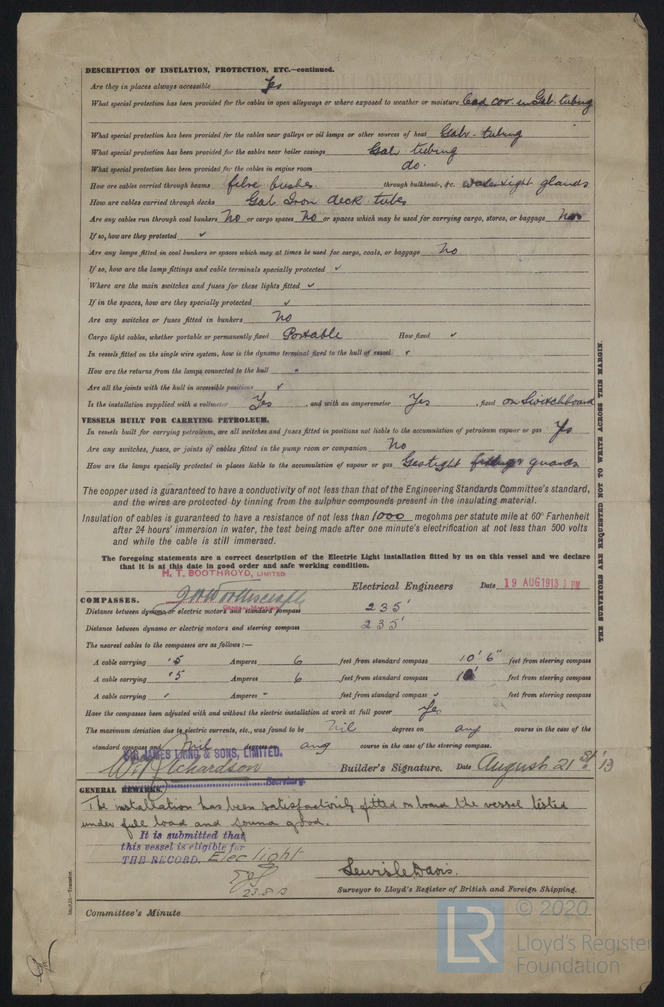 DESCRIPTION OF INSULATION, PROTECTION, ETC.—continued.
Are they in places always accessible Yes
What special protection has been provided for the cables in open alleyways or where exposed to weather or moisture Lead cov. in Gal. tubing
What special protection has been provided for the cables near galleys or oil lamps or other sources of heat Galv. tubing
What special protection has been provided for the cables near boiler casings Gal tubing
What special protection has been provided for the cables in engine room do.
How are cables carried through beams fibre bushes. through bulkheads, &c. watertight glands
How are cables carried through decks Gal Iron deck tubes
Are any cables run through coal bunkers No or cargo spaces No or spaces which may be used for carrying cargo, stores, or baggage No
If so, how are they protected ✓
Are any lamps fitted in coal bunkers or spaces which may at times be used for cargo, coals, or baggage No
If so, how are the lamp fittings and cable terminals specially protected ✓
Where are the main switches and fuses for these lights fitted ✓
If in the spaces, how are they specially protected ✓
Are any switches or fuses fitted in bunkers No
Cargo light cables, whether portable or permanently fixed Portable How fixed ✓
In vessels fitted on the single wire system, how is the dynamo terminal fixed to the hull of vessel ✓
How are the returns from the lamps connected to the hull "
Are all the joints with the hull in accessible positions ✓
Is the installation supplied with a voltmeter Yes , and with an amperemeter Yes , fixed on Switchboard
VESSELS BUILT FOR CARRYING PETROLEUM.
In vessels built for carrying petroleum, are all switches and fuses fitted in positions not liable to the accumulation of petroleum vapour or gas Yes
Are any switches, fuses, or joints of cables fitted in the pump room or companion No
How are the lamps specially protected in places liable to the accumulation of vapour or gas Gastight guards
The copper used is guaranteed to have a conductivity of not less than that of the Engineering Standards Committee's standard,
and the wires are protected by tinning from the sulphur compounds present in the insulating material.
Insulation of cables is guaranteed to have a resistance of not less than 1000 megohms per statute mile at 60° Farhenheit
after 24 hours' immersion in water, the test being made after one minute's electrification at not less than 500 volts
and while the cable is still immersed.
The foregoing statements are a correct description of the Electric Light installation fitted by us on this vessel and we declare
that it is at this date in good order and safe working condition.
H. T. BOOTHROYD, LIMITED
Electrical Engineers Date 19 AUG 1913 PM
COMPASSES.
Distance between dynamo or electric motors and standard compass 235'
Distance between dynamo or electric motors and steering compass 235'
The nearest cables to the compasses are as follows:—
A cable carrying ·5 Amperes 6 feet from standard compass 10' 6" feet from steering compass
A cable carrying ·5 Amperes 6 feet from standard compass 10' feet from steering compass
A cable carrying " Amperes " feet from standard compass " feet from steering compass
Have the compasses been adjusted with and without the electric installation at work at full power Yes
The maximum deviation due to electric currents, etc., was found to be Nil degrees on any course in the case of the
standard compass and Nil degrees on any course in the case of the steering compass.
SIR JAMES LAING & SONS, LIMITED.
Richardson Secretary. Builder's Signature. Date August 21st 13
GENERAL REMARKS.
The installation has been satisfactorily fitted on board the vessel tested
under full load and found good.
It is submitted that
this vessel is eligible for
THE RECORD. Elec light
23.8.13
Lewis le Davis.
Surveyor to Lloyd's Register of British and Foreign Shipping.
Committee's Minute
THE SURVEYORS ARE REQUESTED NOT TO WRITE ACROSS THIS MARGIN.
LR
© 2020
Lloyd's Register
Foundation